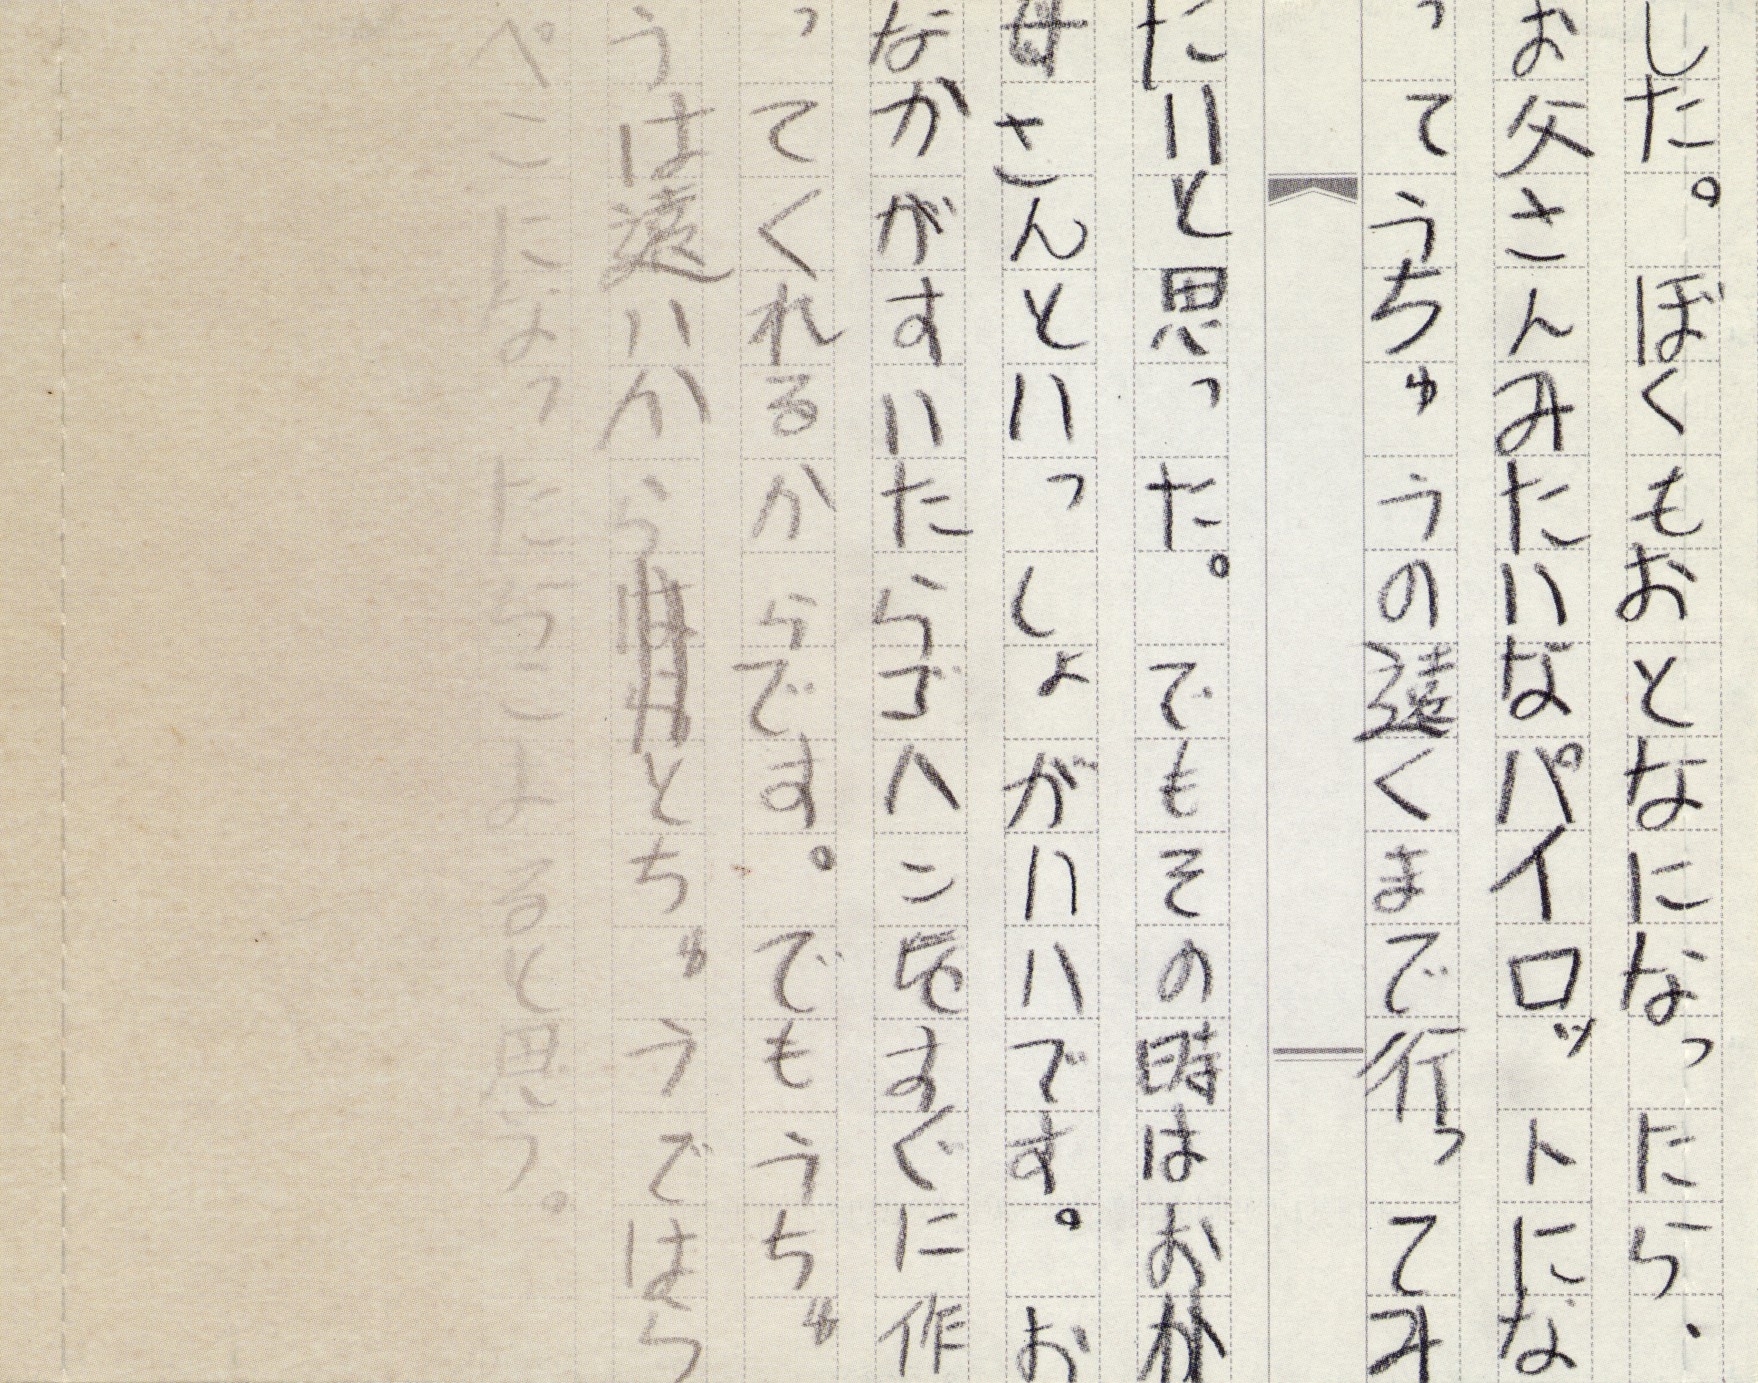 した。ぼくもおとなになったら、
お父さんみたいなパイロットにな
ってうちゅうの遠くまで行ってみ
たいと思った。でもその時はおか
母さんといっしょがいいです。お
なかがすいたらゴハンをすぐに作
ってくれるからです。でもうちゅ
うは遠いからとちゅうではら
ぺこになったらこまると思う。